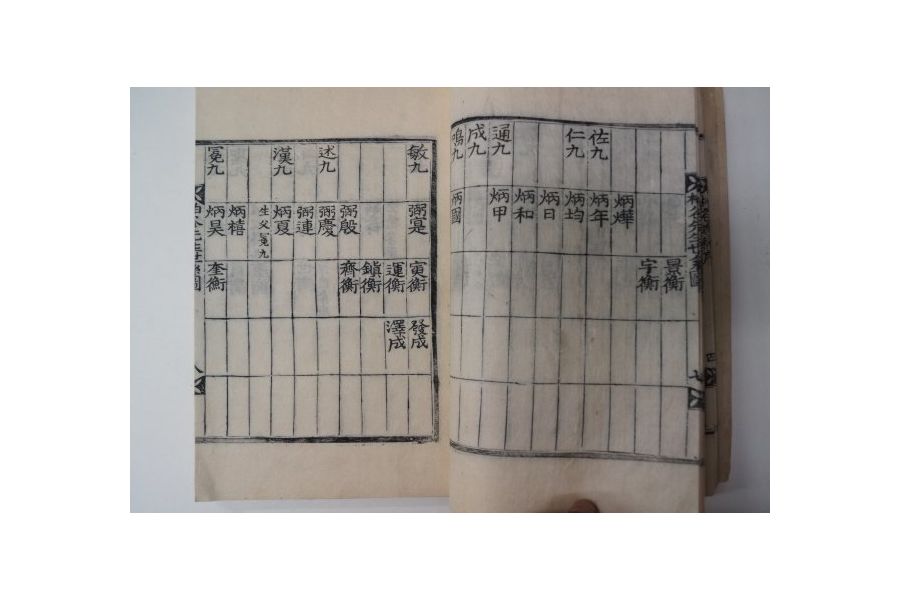 景衡
宇衡
炳燁
佐九
炳年
仁九
炳均
炳日
炳和
通九
炳甲
成九
鳴九
炳國
七
四
敏九
弼寔
寅衡
發成
運衡
澤成
鎭衡
弼殷
齊衡
述九
弼慶
弼連
漢九
炳夏
生父冕九
炳禧
冕九
炳昊
奎衡
八